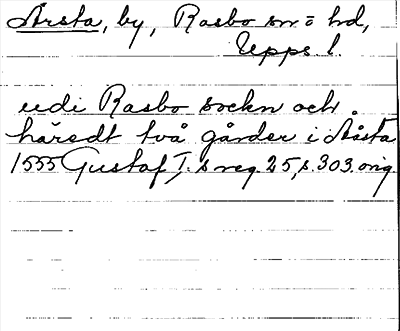 Årsta, by, Rasbo sn. = hd,
Upps. l.
udi Rasbo sockn och
häredt två gårder i Åsta
1555 Gustaf I:s reg. 25, s. 303. orig.